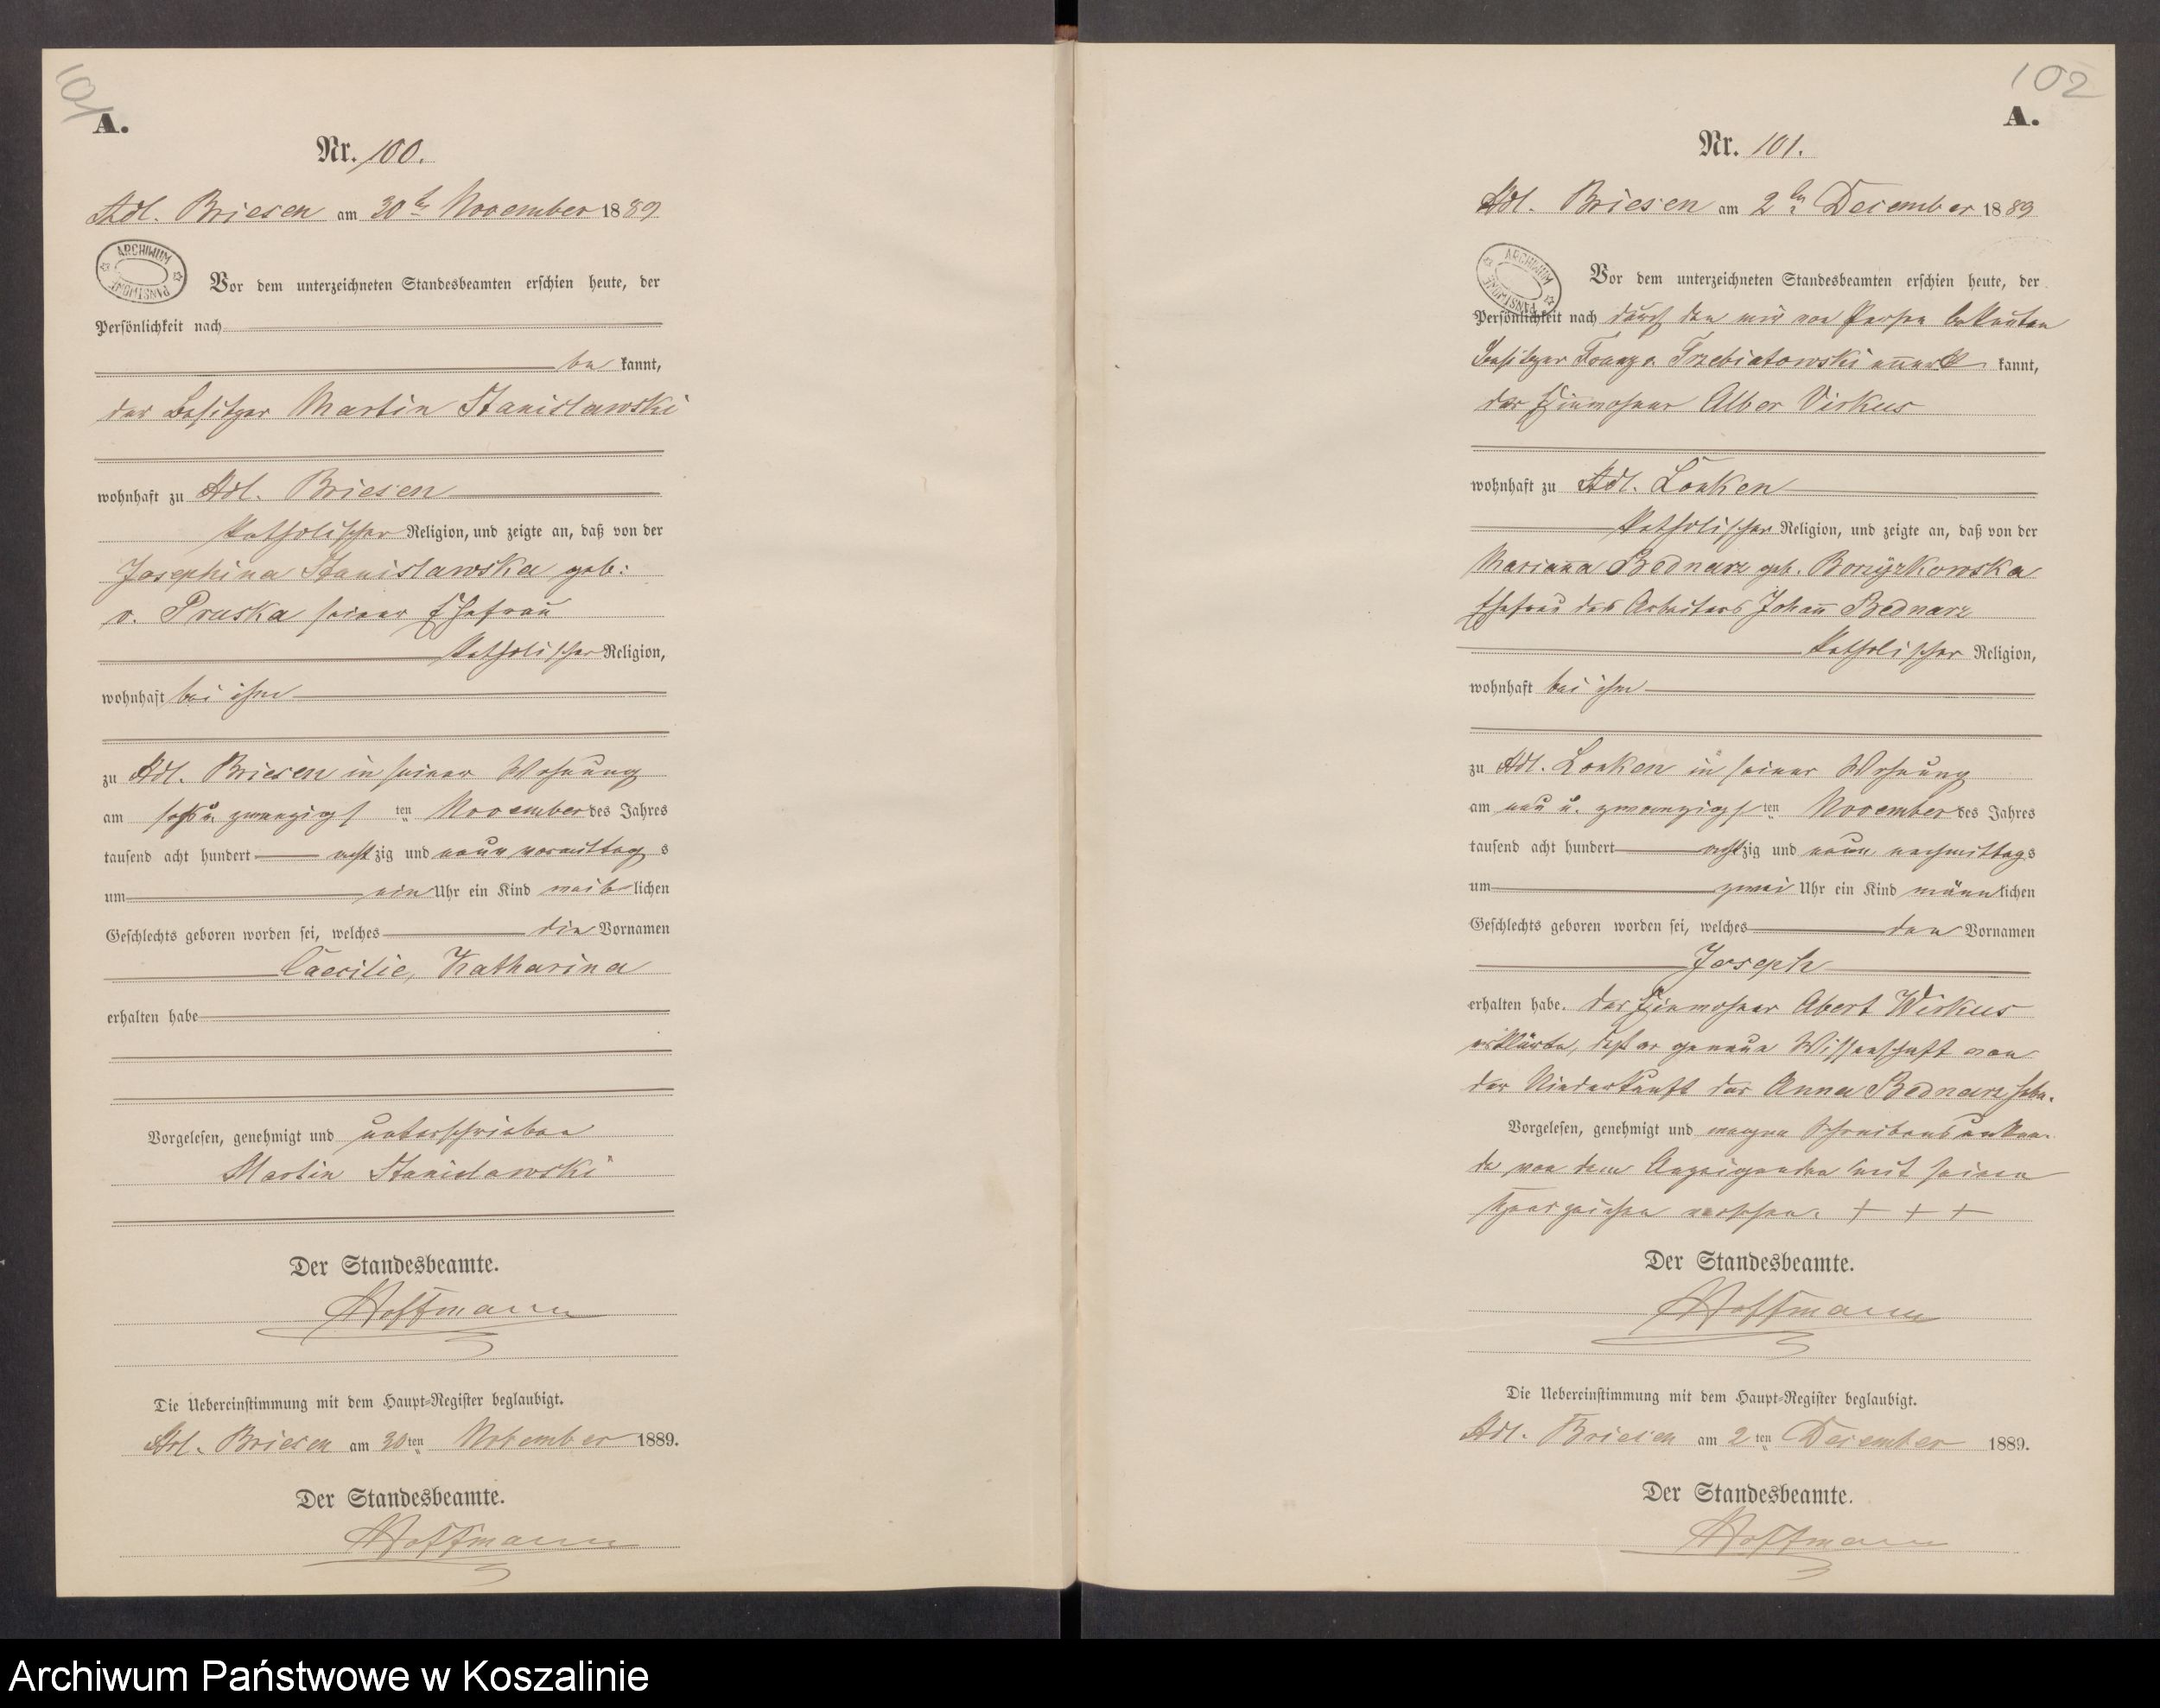 101
A.
Nr. 100.
Adl. Briesen am 30ten November 1889
ARCHIWUM PAŃSTWOWE
Vor dem unterzeichneten Standesbeamten erschien heute, der
Persönlichkeit nach
be kannt,
der Besitzer Martin Stanislawski
wohnhaft zu Adl. Briesen
katholischer Religion, und zeigte an, daß von der
Josephina Stanislawska geb:
v. Pruska seiner Ehefrau
katholischer Religion,
wohnhaft bei ihm
zu Adl. Briesen in seiner Wohnung
am sechs u. zwanzigsten November des Jahres
tausend acht hundert achtzig und neun vormittags
um ein Uhr ein Kind weiblichen
Geschlechts geboren worden sei, welches die Vornamen
Caecilie, Katharina
erhalten habe
Vorgelesen, genehmigt und unterschrieben
Martin Stanislawski
Der Standesbeamte.
Hoffmann
Die Uebereinstimmung mit dem Haupt-Register beglaubigt.
Adl. Briesen am 30ten November 1889.
Der Standesbeamte.
Hoffmann
102
A.
Nr. 101.
Adl. Briesen am 2ten December 1889
ARCHIWUM PAŃSTWOWE
Vor dem unterzeichneten Standesbeamten erschien heute, der
Persönlichkeit nach durch den mir von Person bekannten
Besitzer Franz v. Trzebiatowski anerkannt,
der Einwohner Alber Virkus
wohnhaft zu Adl. Lonken
katholischer Religion, und zeigte an, daß von der
Marianna Bednarz geb. Borzyzkowska
Ehefrau des Arbeiters Johann Bednarz
katholischer Religion,
wohnhaft bei ihm
zu Adl. Lonken in seiner Wohnung
am neun u. zwanzigsten November des Jahres
tausend acht hundert achtzig und neun nachmittags
um zwei Uhr ein Kind männlichen
Geschlechts geboren worden sei, welches den Vornamen
Joseph
erhalten habe. Der Einwohner Abert Wirkus
erklärte, daß er genaue Wissenschaft von
der Niederkunft der Anna Bednarz habe.
Vorgelesen, genehmigt und wegen Schreibensunkun-
de von dem Anzeigenden mit seinen
Handzeichen versehen. + + +
Der Standesbeamte.
Hoffmann
Die Uebereinstimmung mit dem Haupt-Register beglaubigt.
Adl. Briesen am 2ten December 1889.
Der Standesbeamte.
Hoffmann
Archiwum Państwowe w Koszalinie